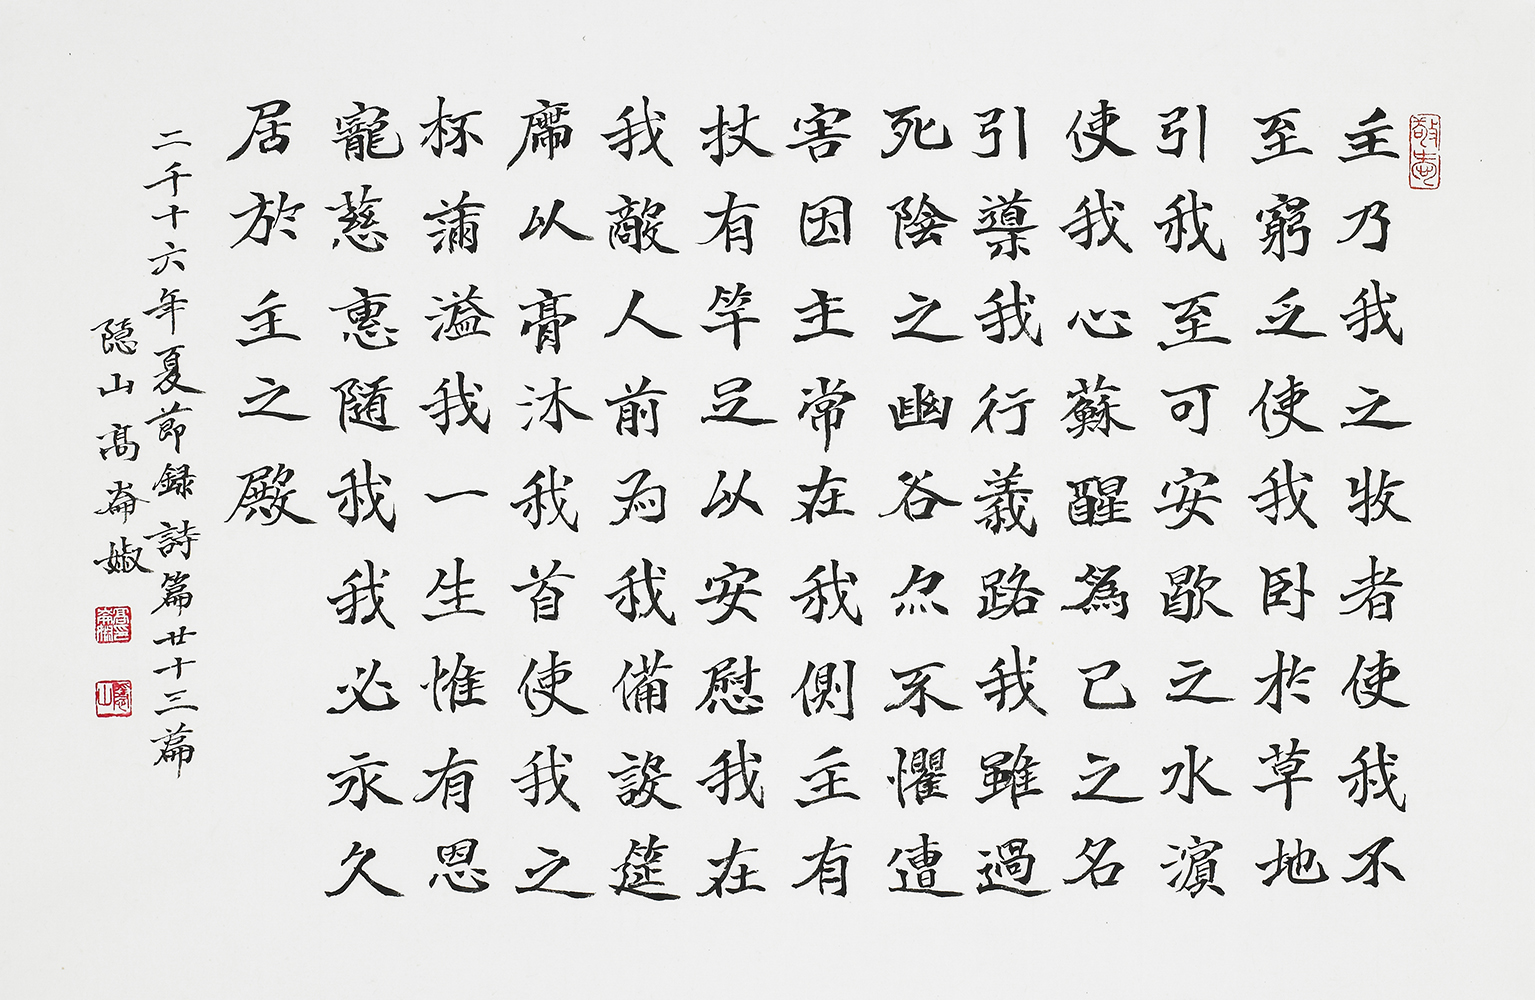 主乃我之牧者使我不
至窮乏使我卧於草地
引我至可安歇之水濱
使我心蘇醒為己之名
引導我行義路我雖過
死陰之幽谷亦不懼遭
害因主常在我側主有
杖有竿足以安慰我在
我敵人前為我備設筵
席以膏沐我首使我之
杯滿溢我一生惟有恩
寵慈惠隨我我必永久
居於主之殿
二千十六年夏節録詩篇廿十三篇
隱山高崙婌